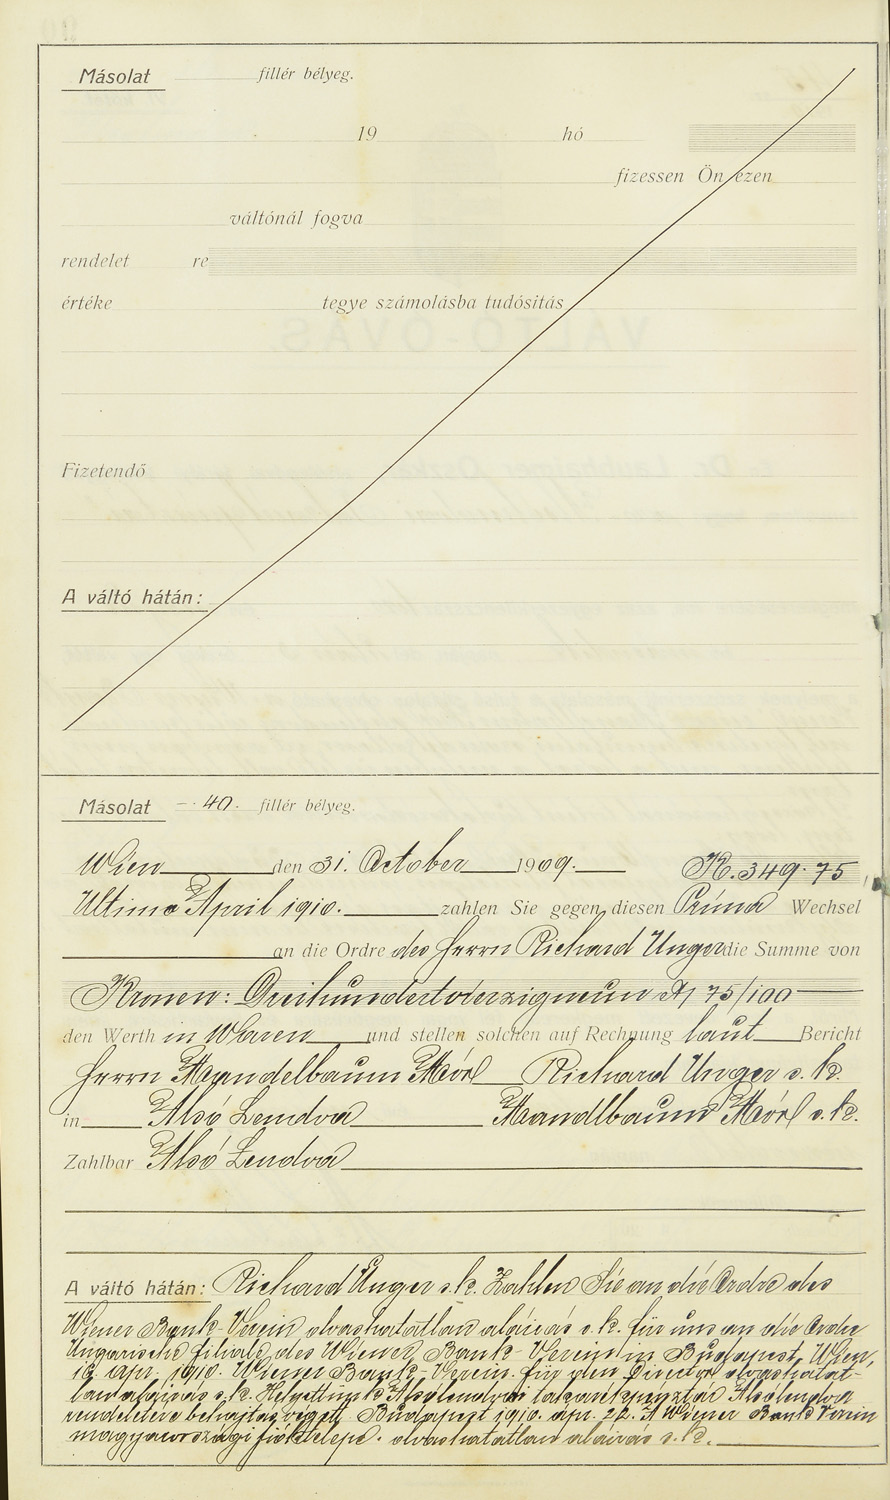 Másolat fillér bélyeg.
19 hó
fizessen Ön ezen
váltónál fogva
rendelet re
értéke tegye számolásba tudósítás
Fizetendő
A váltó hátán:
Másolat – 40. fillér bélyeg.
Wien den 31. October 1909. K. 349.75
Ultimo April 1910. zahlen Sie gegen diesen Prima Wechsel
an die Ordre des Herrn Richard Unger die Summe von
Kronen: Dreihundertvierzigneun 75/100
den Werth in Waren und stellen solchen auf Rechnung laut Bericht
Herrn Mandelbaum Mór Richard Unger s. k.
in Alsó Lendva Mandlbaum Mór s. k.
Zahlbar Alsó Lendva
A váltó hátán: Richard Unger s. k. Zahlen Sie an die Ordre des
Wiener Bank-Verein olvashatatlan aláirás s. k. für uns an die Ordre
Ungarische Filiale des Wiener Bank-Verein in Budapest, Wien,
19 apr. 1910. Wiener Bank-Verein. für den Director olvashatat-
lan aláirás s. k. Helyettünk Alsólendvai takarékpénztár Alsólendva
rendeletére behajtás végett Budapest 1910. apr. 22. A Wiener Bank Verein
magyarországi fióktelepe. olvashatatlan aláirás s. k.